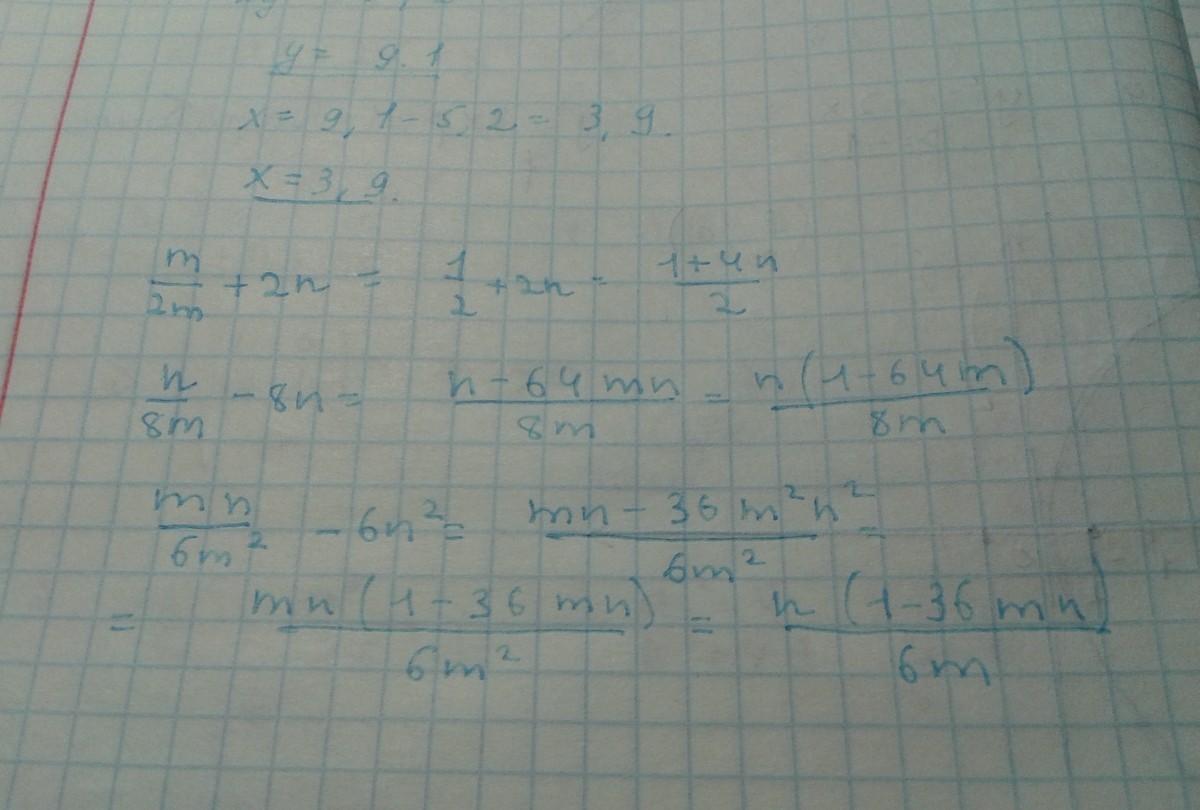 y = 9.1
x = 9,1 - 5,2 = 3,9.
x = 3,9.
m/2m + 2n = 1/2 + 2n = (1+4n)/2
n/8m - 8n = (n - 64mn)/8m = n(1-64m)/8m
mn/6m² - 6n² = (mn - 36m²n²)/6m² =
= mn(1-36mn)/6m² = n(1-36mn)/6m